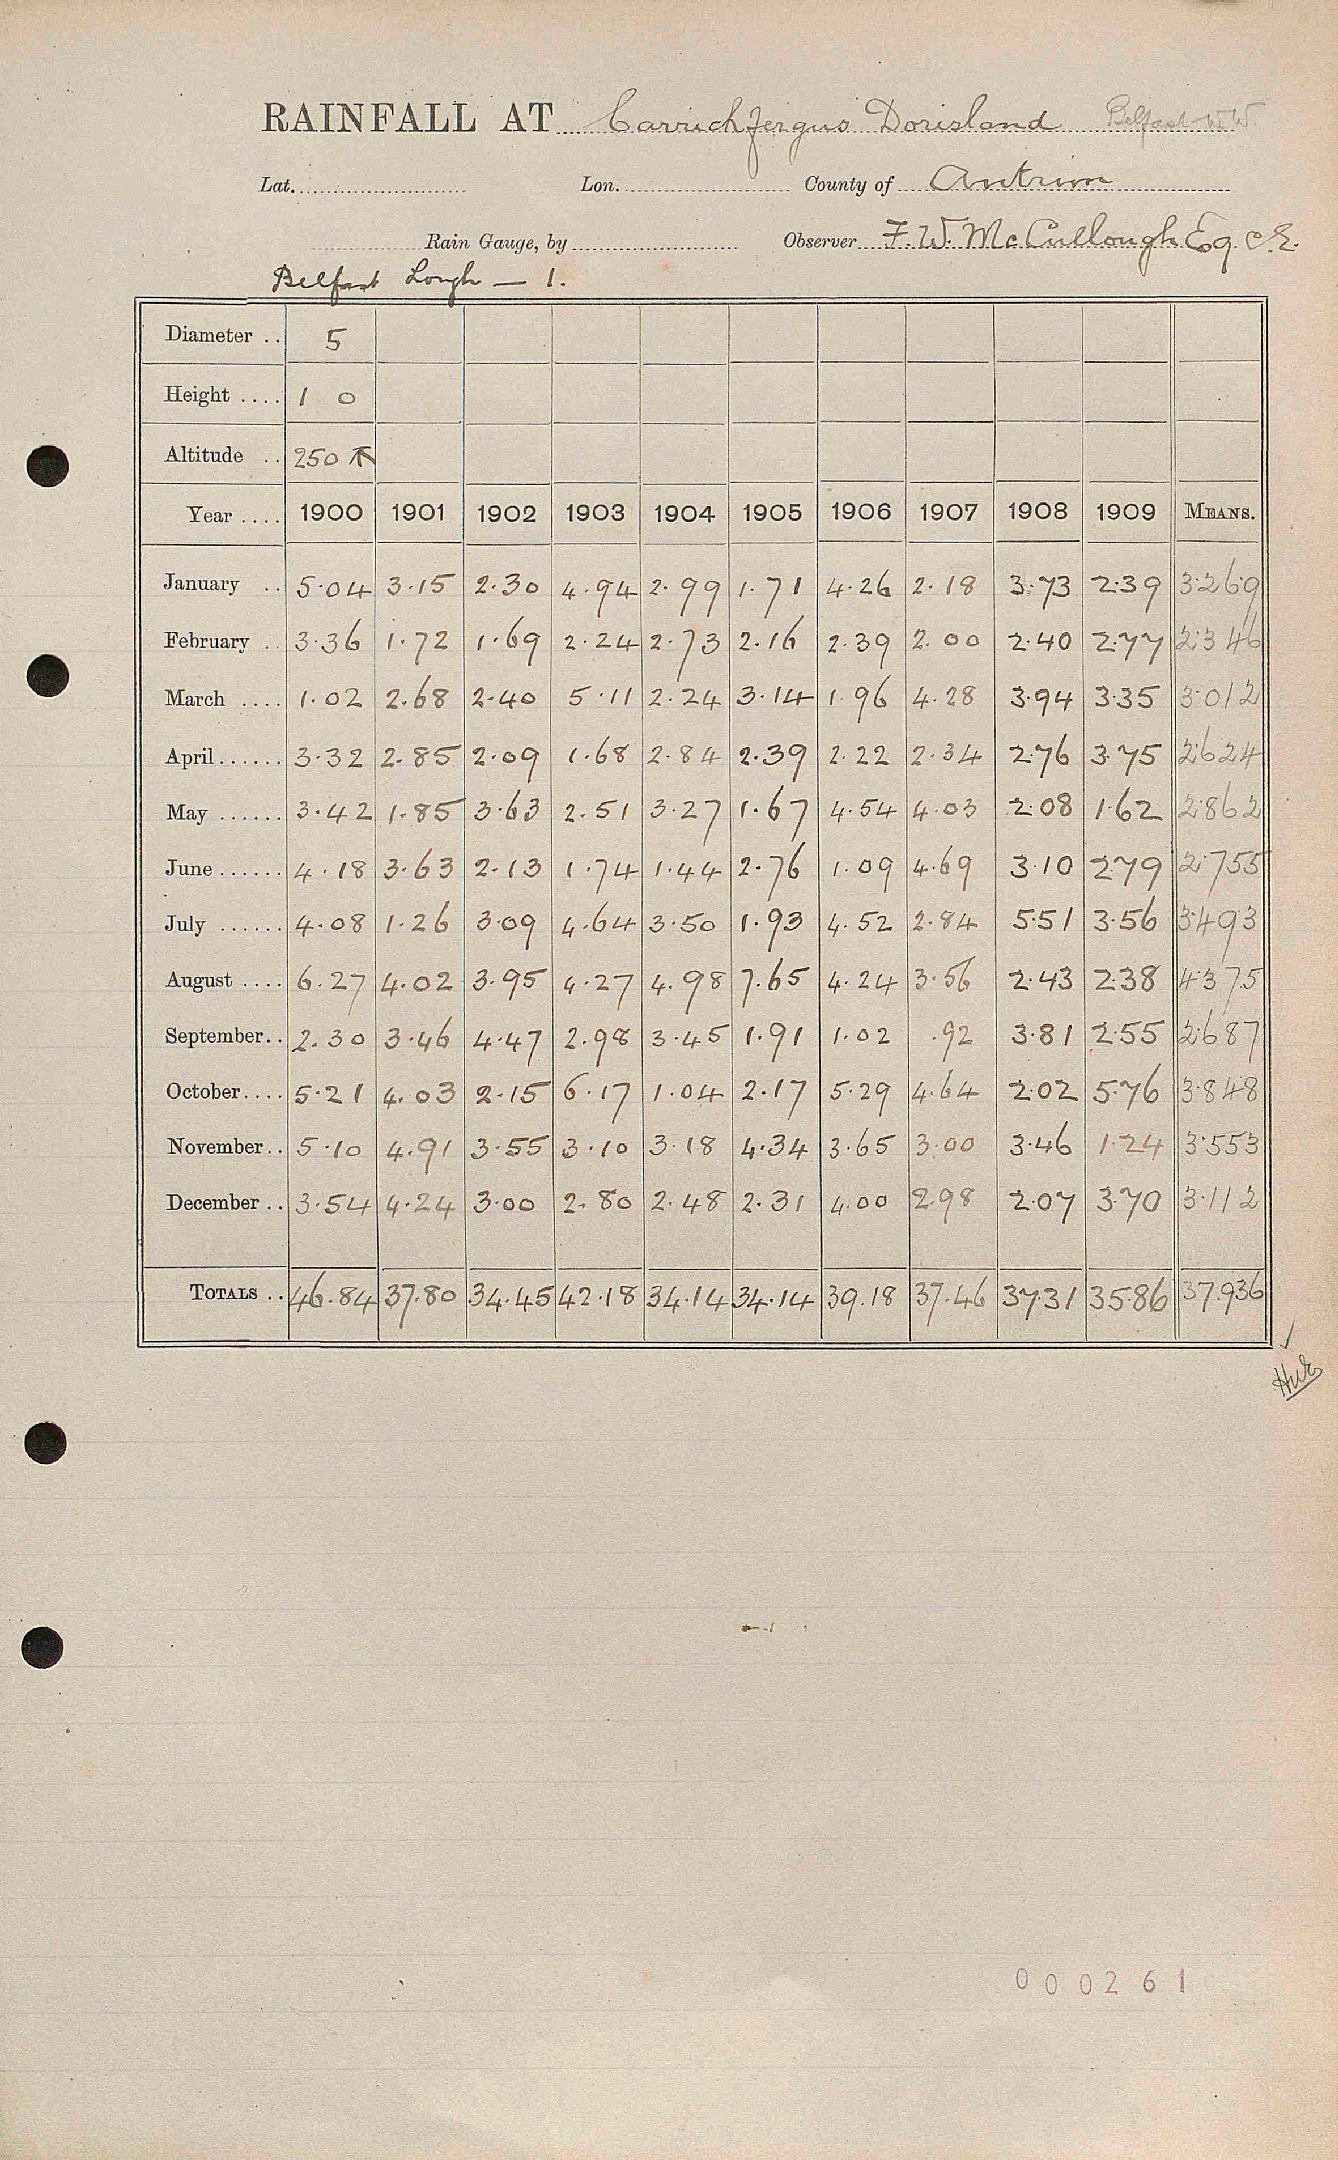 RAINFALL AT Carrickfergus Dorisland Belfast W.W.
Lat. Lon. County of Antrim
Rain Gauge, by Observer F. W. McCullough Esq. C.E.
Belfast Lough — 1.
Diameter .. 5
Height .... 1 0
Altitude .. 250
Year .... 1900 1901 1902 1903 1904 1905 1906 1907 1908 1909 MEANS.
January .. 5.04 3.15 2.30 4.94 2.99 1.71 4.26 2.18 3.73 2.39 3.269
February .. 3.36 1.72 1.69 2.24 2.73 2.16 2.39 2.00 2.40 2.77 2.346
March .... 1.02 2.68 2.40 5.11 2.24 3.14 1.96 4.28 3.94 3.35 3.012
April...... 3.32 2.85 2.09 1.68 2.84 2.39 2.22 2.34 2.76 3.75 2.624
May ...... 3.42 1.85 3.63 2.51 3.27 1.67 4.54 4.03 2.08 1.62 2.862
June...... 4.18 3.63 2.13 1.74 1.44 2.76 1.09 4.69 3.10 2.79 2.755
July ...... 4.08 1.26 3.09 4.64 3.50 1.93 4.52 2.84 5.51 3.56 3.493
August .... 6.27 4.02 3.95 4.27 4.98 7.65 4.24 3.56 2.43 2.38 4.375
September.. 2.30 3.46 4.47 2.98 3.45 1.91 1.02 .92 3.81 2.55 2.687
October.... 5.21 4.03 2.15 6.17 1.04 2.17 5.29 4.64 2.02 5.76 3.848
November.. 5.10 4.91 3.55 3.10 3.18 4.34 3.65 3.00 3.46 1.24 3.553
December .. 3.54 4.24 3.00 2.80 2.48 2.31 4.00 2.98 2.07 3.70 3.112
TOTALS .. 46.84 37.80 34.45 42.18 34.14 34.14 39.18 37.46 37.31 35.86 37.936
000261